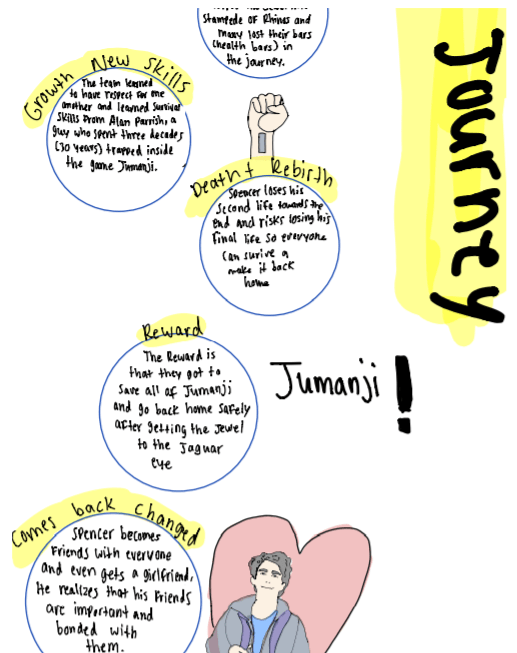 Stampede of Rhinos and
many lost their bars
(health bars) in
the journey.
Journey
Growth New Skills
The team learned
to have respect for one
another and learned survival
skills from Alan Parrish, a
guy who spent three decades
(30 years) trapped inside
the game Jumanji.
Death + Rebirth
Spencer loses his
second life towards the
end and risks losing his
final life so everyone
can surive a
make it back
home
Reward
The Reward is
that they got to
save all of Jumanji
and go back home safely
after getting the Jewel
to the Jaguar
eye
Jumanji!
Comes back changed
Spencer becomes
Friends with everyone
and even gets a girlfriend.
He realizes that his Friends
are important and
bonded with
them.